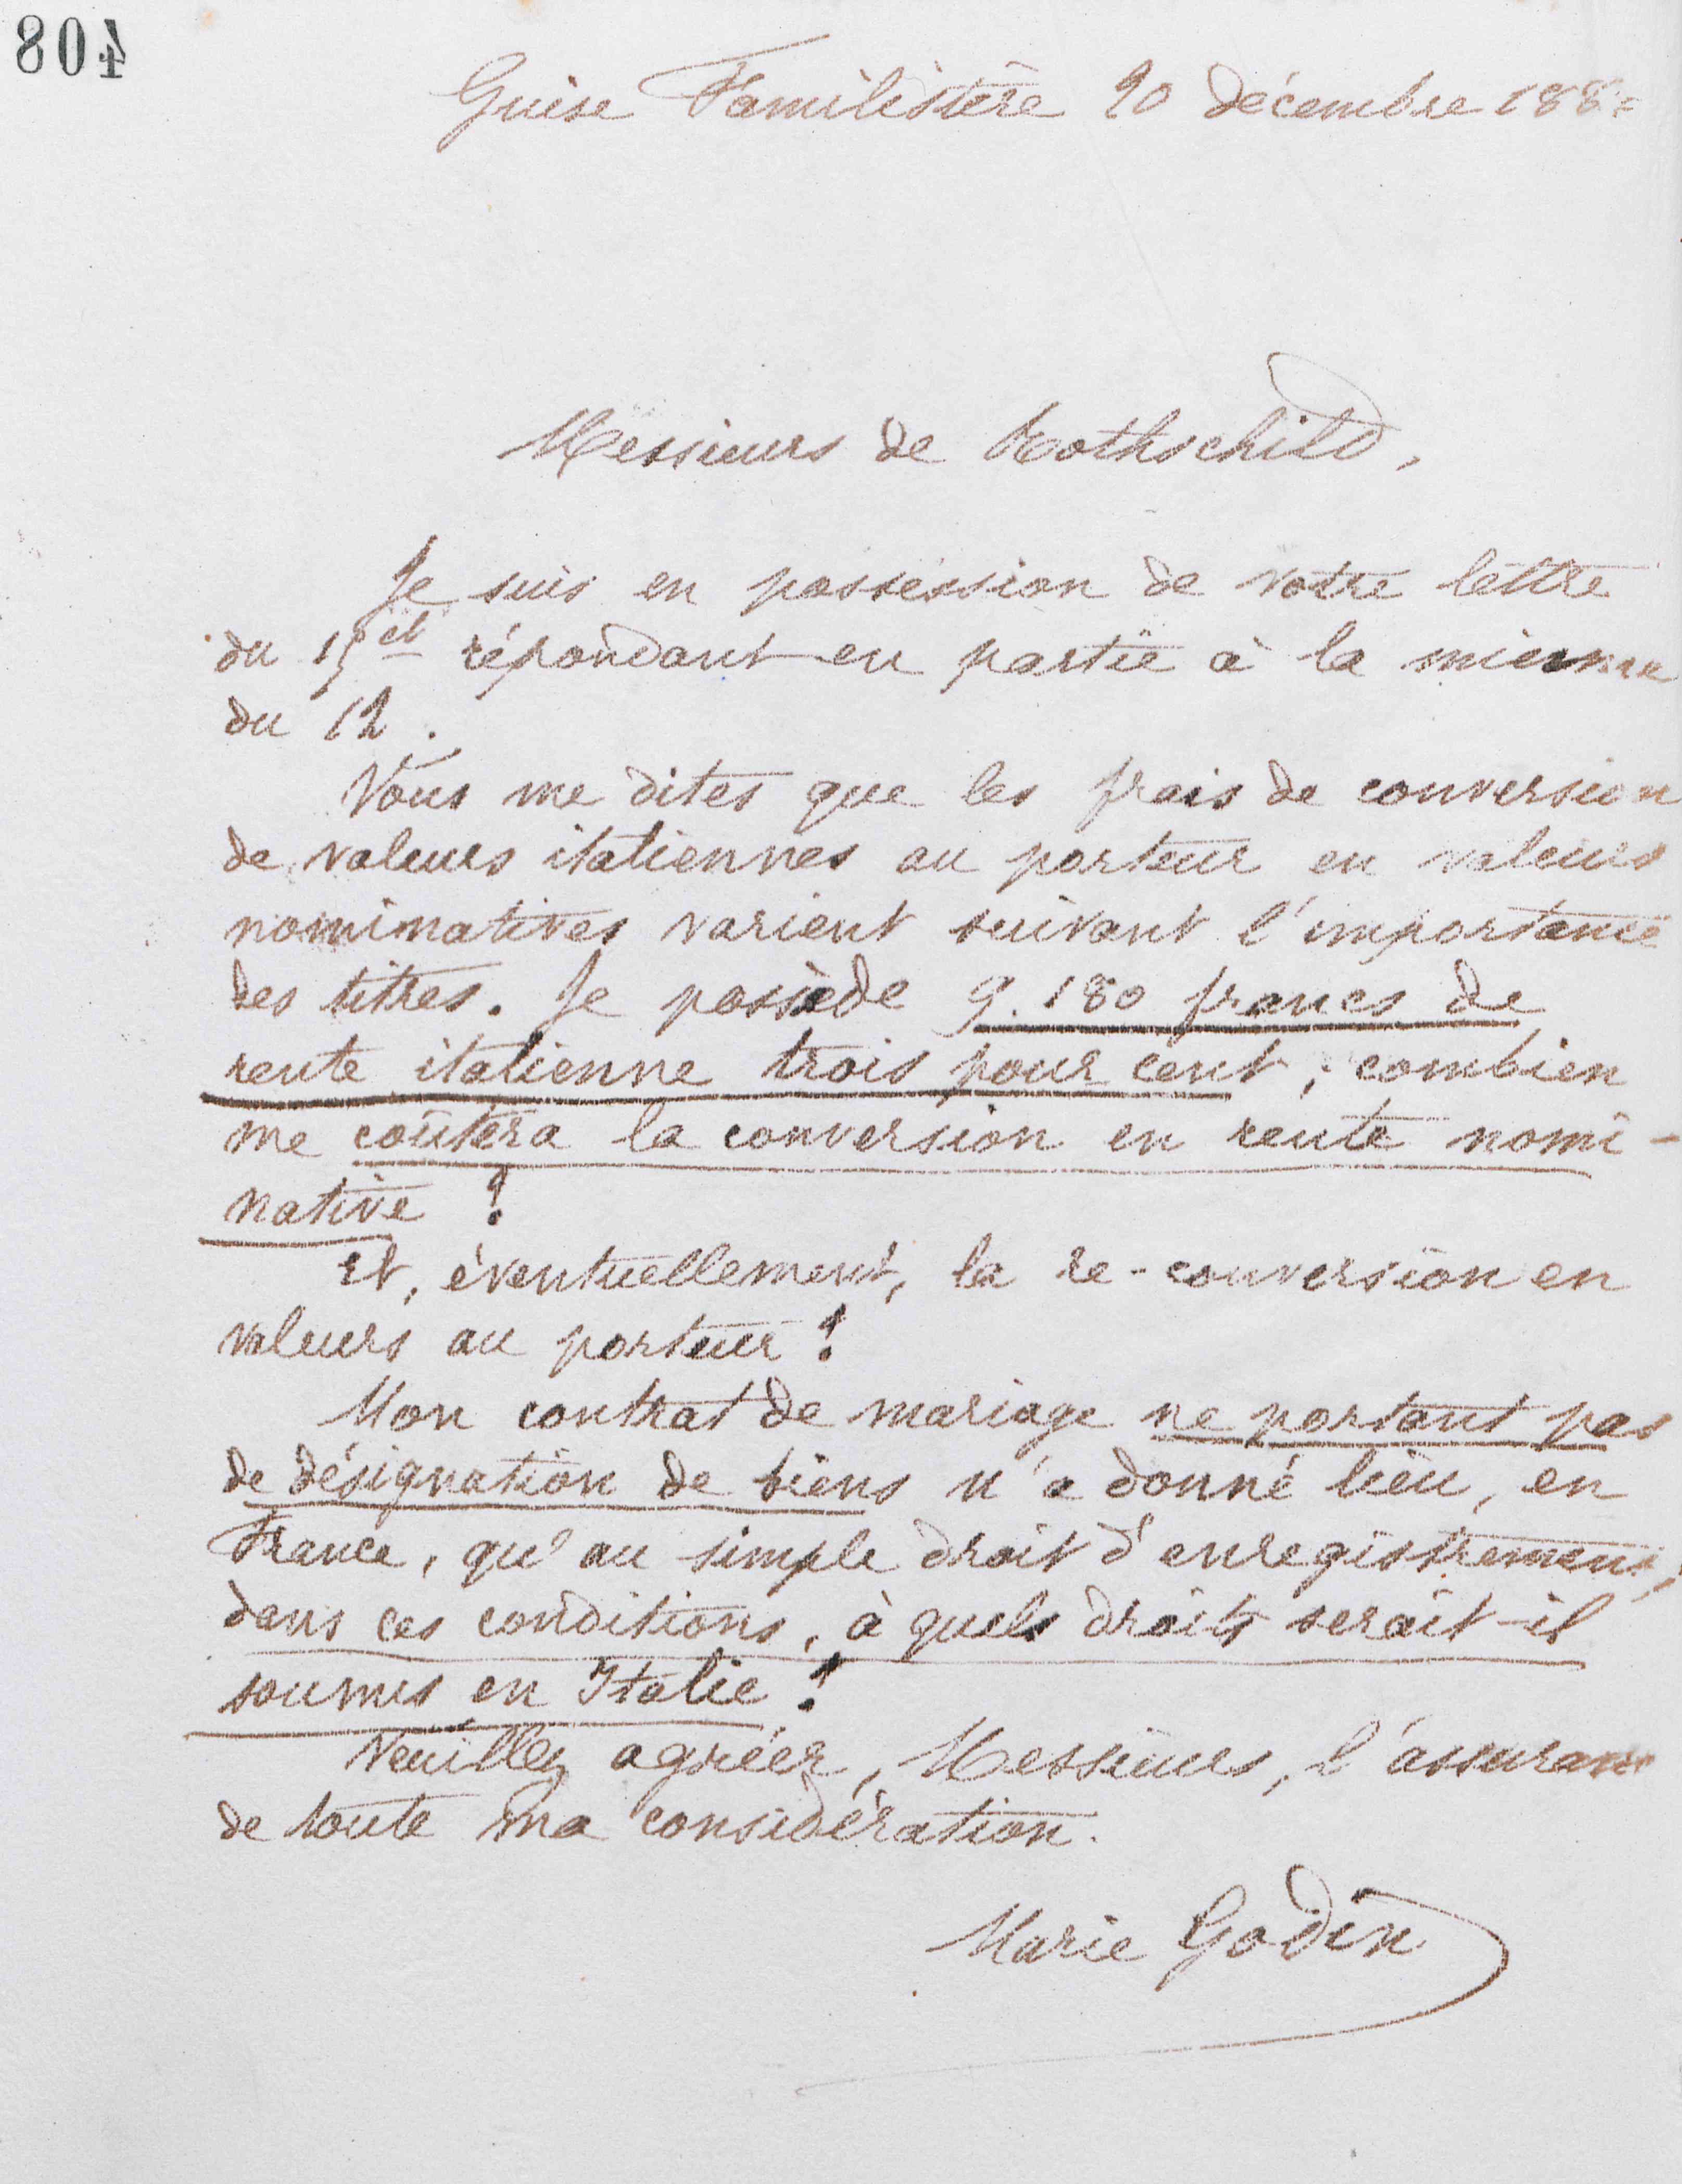 408
Guise Familistère 20 décembre 188
Messieurs de Rothschild,
Je suis en possession de votre lettre
du 15 ct répondant en partie à la mienne
du 12.
Vous me dites que les frais de conversion
de valeurs italiennes au porteur en valeurs
nominatives varient suivant l'importance
des titres. Je possède 9.180 francs de
rente italienne trois pour cent ; combien
me coûtera la conversion en rente nomi-
native ?
Et, éventuellement, la re-conversion en
valeurs au porteur ?
Mon contrat de mariage ne portant pas
de désignation de biens n'a donné lieu, en
France, qu'au simple droit d'enregistrement,
dans ces conditions, à quels droits serait-il
soumis en Italie ?
Veuillez agréer, Messieurs, l'assurance
de toute ma considération.
Marie Godin